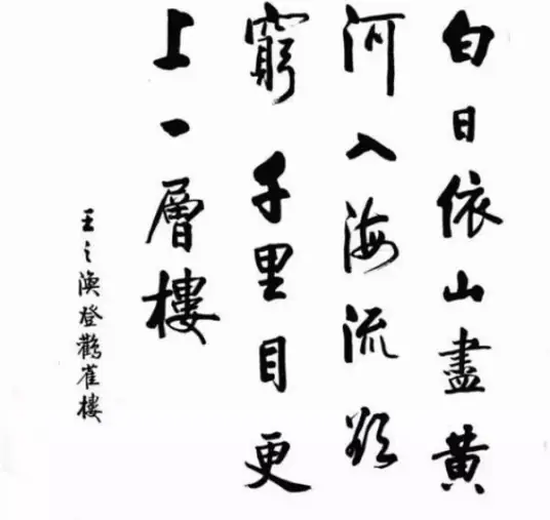 白日依山盡黃
河入海流欲
窮千里目更
上一層樓
王之渙登鸛雀樓